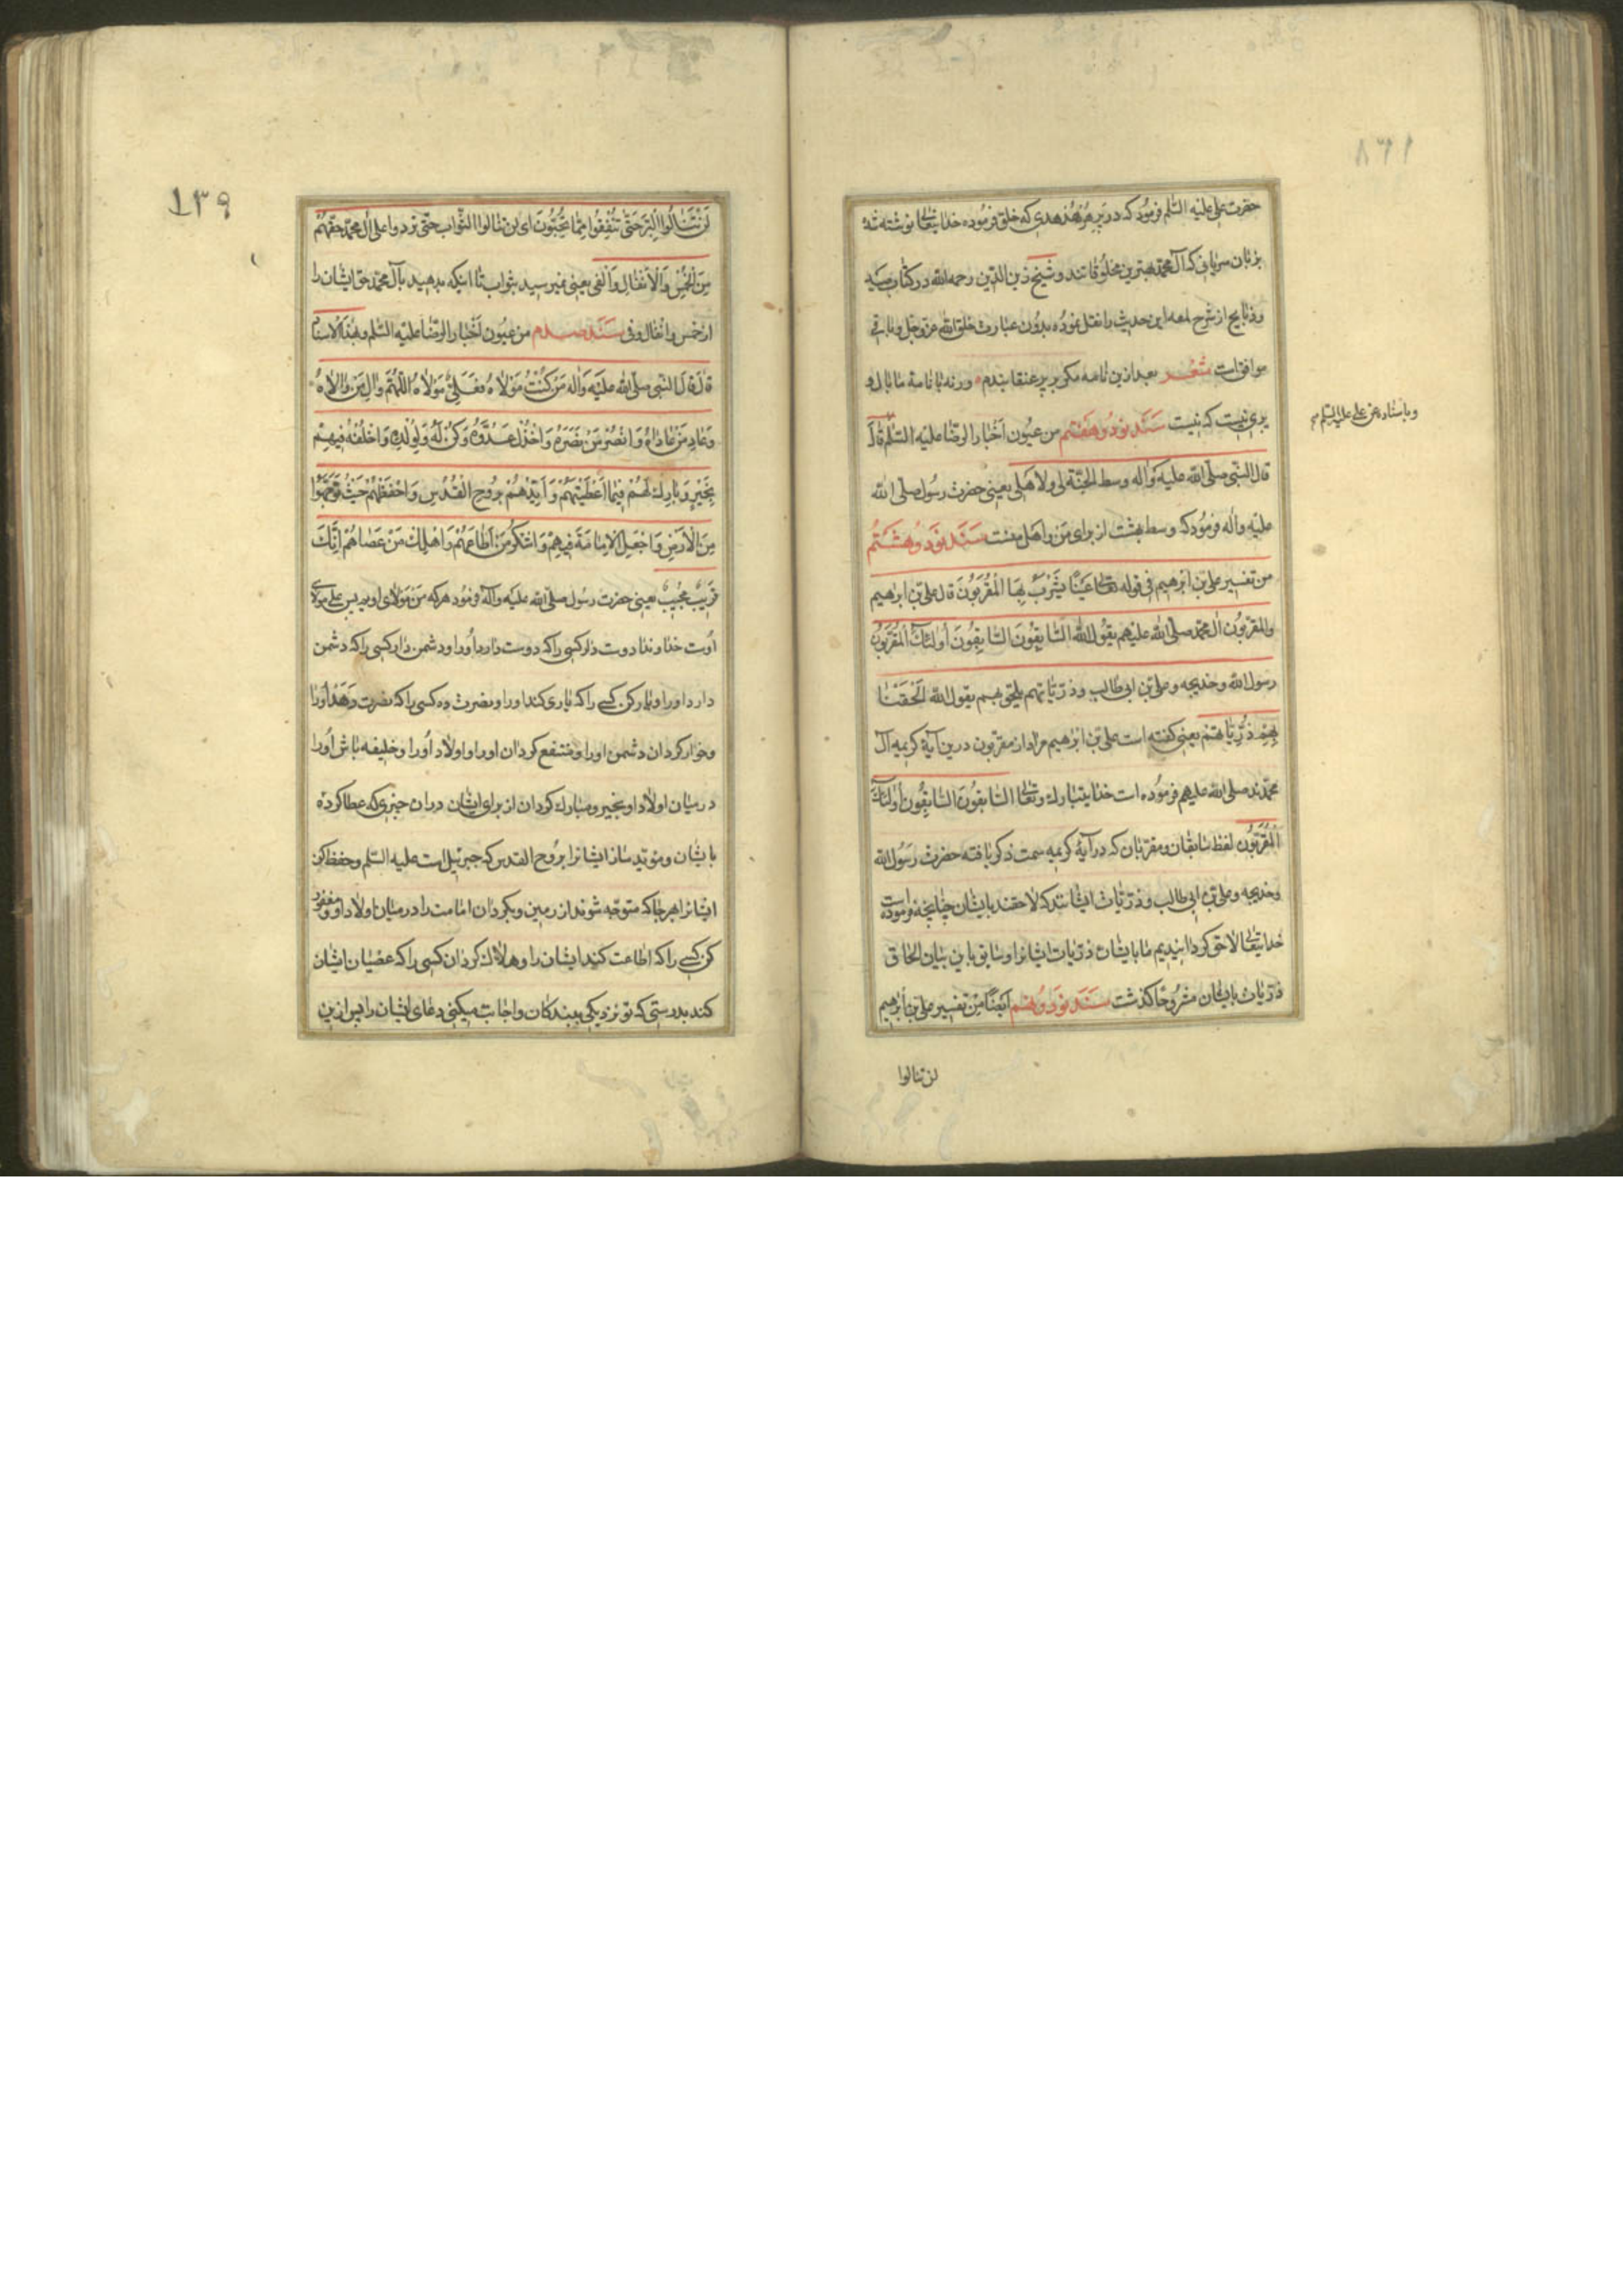 حضرت علی علیه السّلم فرمود که در پر هر هدهدی که خلق فرموده خدایتعالی نوشته شده
بزبان سریانی که آل محمّد بهترین مخلوقاتند و شیخ زین الدّین رحمه الله در کتاب صید
وذبایح از شرح لمعه این حدیث را نقل نموده بدون عبارت خلق الله عزّ وجلّ و باقی
موافق است شعر بعد ازین نامه مکر بر پر عنقا بندم ورنه با نامهٔ ما بال و
پری نیست که نیست سند نود وهفتم من عیون اخبار الرضا علیه السّلم قال
وباسناده عن علی علیه السّلم
قال النّبی صلّی الله علیه واله وسط الجنّة لی ولاهلی یعنی حضرت رسول صلّی الله
علیه واله فرمود که وسط بهشت از برای من واهل منست سند نود وهشتم
من تفسیر علی بن ابرهیم فی قوله تعالی عَینًا یَشْرَبُ بِهَا الْمُقَرَّبُونَ قال علی بن ابرهیم
والمقرّبون ال محمّد صلّی الله علیهم یقول الله السّابِقُونَ السّابِقُونَ أُولئِكَ المُقَرَّبُونَ
رسول الله وخدیجه وعلی بن ابی طالب وذرّیّاتهم یلحق بهم یقول الله اَلْحَقْنَا
بِهِمْ ذُرِّیّاتِهِمْ یعنی کفته است علی بن ابرهیم مراد از مقرّبون درین آیهٔ کریمه آل
محمّدند صلی الله علیهم فرموده است خدایتبارك وتعالی السّابِقُونَ السّابِقُونَ أُولئِكَ
الْمُقَرَّبُونَ لفظ سابقان ومقرّبان که در آیهٔ کریمه سمت ذکر یافته حضرت رسول الله
وخدیجه وعلی بن ابی طالب وذرّیّات ایشانند که لاحقند بایشان چنانچه فرموده است
خدایتعالی لاحق کردانیدیم ما بایشان ذرّیات ایشانرا و سابق باین بیان الحاق
ذرّیات بایشان مشروحا کذشت سند نود ونهم ایضًا من تفسیر علی بن ابرهیم
لن تنالوا
١٣٩
لَنْ تَنَالُوا الْبِرَّ حَتّی تُنْفِقُوا مِمّا تُحِبُّونَ ای لن تنالوا الثّواب حتّی تردوا علی ال محمّد حقّهم
مِنَ الْخُمُسِ وَالْاَنْفَالِ وَالْفَیِ یعنی نمیرسید بثواب تا اینکه بدهید بآل محمّد حق ایشان را
از خمس وانفال وفی سند صدم من عیون اخبار الرضا علیه السّلم وبهذا الاسناد
قال قال النّبی صلّی الله علیه واله مَنْ کُنْتُ مَوْلاهُ فَعَلِیٌّ مَوْلاهُ اللّهُمَّ وَالِ مَنْ وَالاهُ
وَعَادِ مَنْ عَادَاهُ وَانْصُرْ مَنْ نَصَرَهُ وَاخْذُلْ عَدُوَّهُ وَکُنْ لَهُ وَلِوُلْدِهِ وَاخْلُفْهُ فِیهِمْ
بِخَیْرٍ وَبَارِكْ لَهُمْ فِیمَا اَعْطَیْتَهُمْ وَاَیِّدْهُمْ بِرُوحِ الْقُدُسِ وَاحْفَظْهُمْ حَیْثُ تَوَجَّهُوا
مِنَ الْاَرْضِ وَاجْعَلِ الْاِمَامَةَ فِیهِمْ وَاشْکُرْ مَنْ اَطَاعَهُمْ وَاَهْلِكْ مَنْ عَصَاهُمْ اِنَّكَ
قَرِیبٌ مُجِیبٌ یعنی حضرت رسول صلّی الله علیه واله فرمود هرکه من مولای اویم پس علی مولای
اوست خداوندا دوست دار کسی راکه دوست دارد اورا ودشمن دار کسی راکه دشمن
دارد اورا ویاری کن کسی راکه یاری کند اورا ونصرت ده کسی راکه نصرت دهد اورا
وخوار کردان دشمن اورا ومنتفع کردان اورا واولاد اورا وخلیفه باش اورا
در میان اولاد او بخیر ومبارك کردان از برای ایشان دران چیزی که عطا کردهٔ
بایشان ومؤیّد ساز ایشانرا بروح القدس که جبرئیل است علیه السّلم وحفظ کن
ایشانرا هرجا که متوجّه شوند از زمین وبکردان امامت را در میان اولاد او
کن کسی راکه اطاعت کنید ایشان را وهلاك کردان کسی راکه عصیان ایشان
کند بدرستی که تو نزدیکی ببندکان واجابت میکنی دعای ایشان را پس ازین